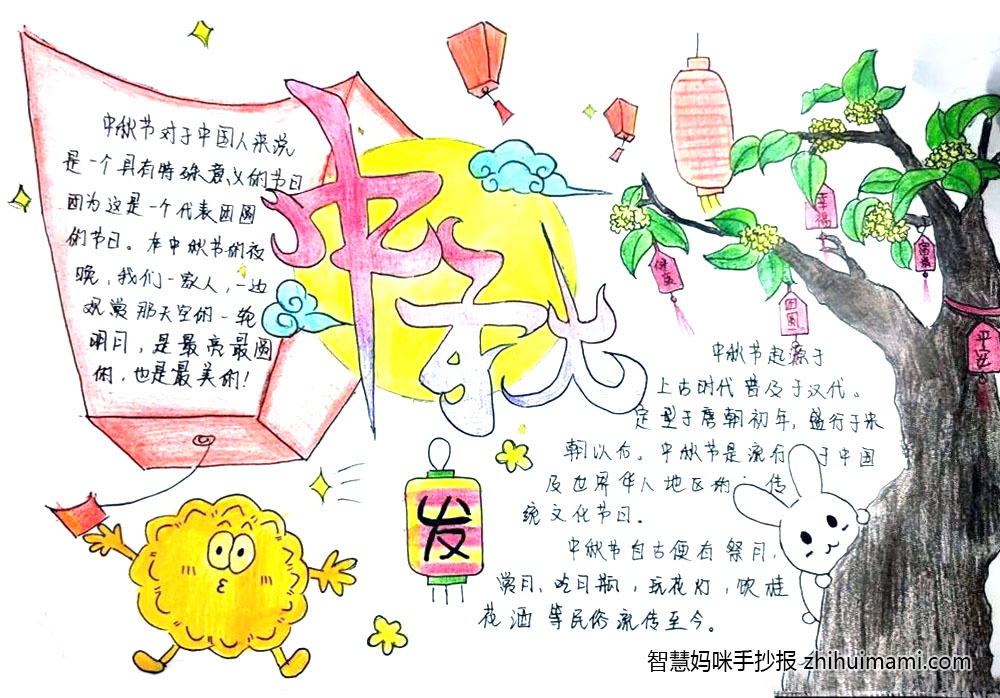 中秋节对于中国人来说
是一个具有特殊意义的节日
因为这是一个代表团圆
的节日。在中秋节的夜
晚，我们一家人，一边
观赏那天空的一轮
明月，是最亮最圆
的，也是最美的！
中秋
发
幸福
健康
团圆
平安
中秋节起源于
上古时代普及于汉代。
定型于唐朝初年，盛行于宋
朝以后。中秋节是流行于中国
及世界华人地区的 传
统文化节日。
中秋节自古便有祭月，
赏月、吃月饼，玩花灯，饮桂
花酒等民俗流传至今。
智慧妈咪手抄报-zhihuimami.com